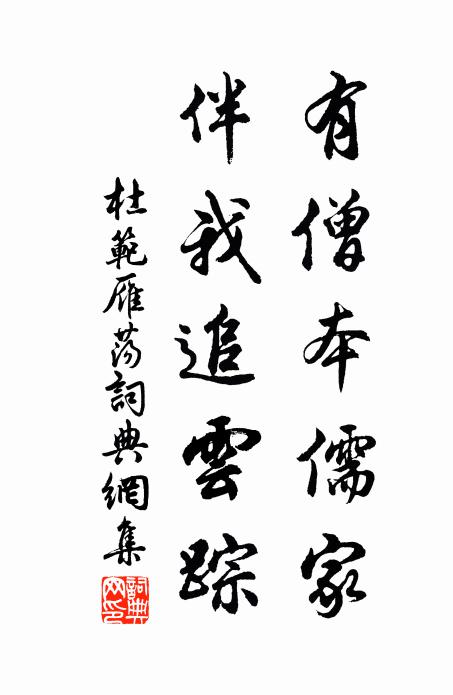 有僧本儒家
伴我追雲踪
杜範雁蕩詞典網集
詞典網印